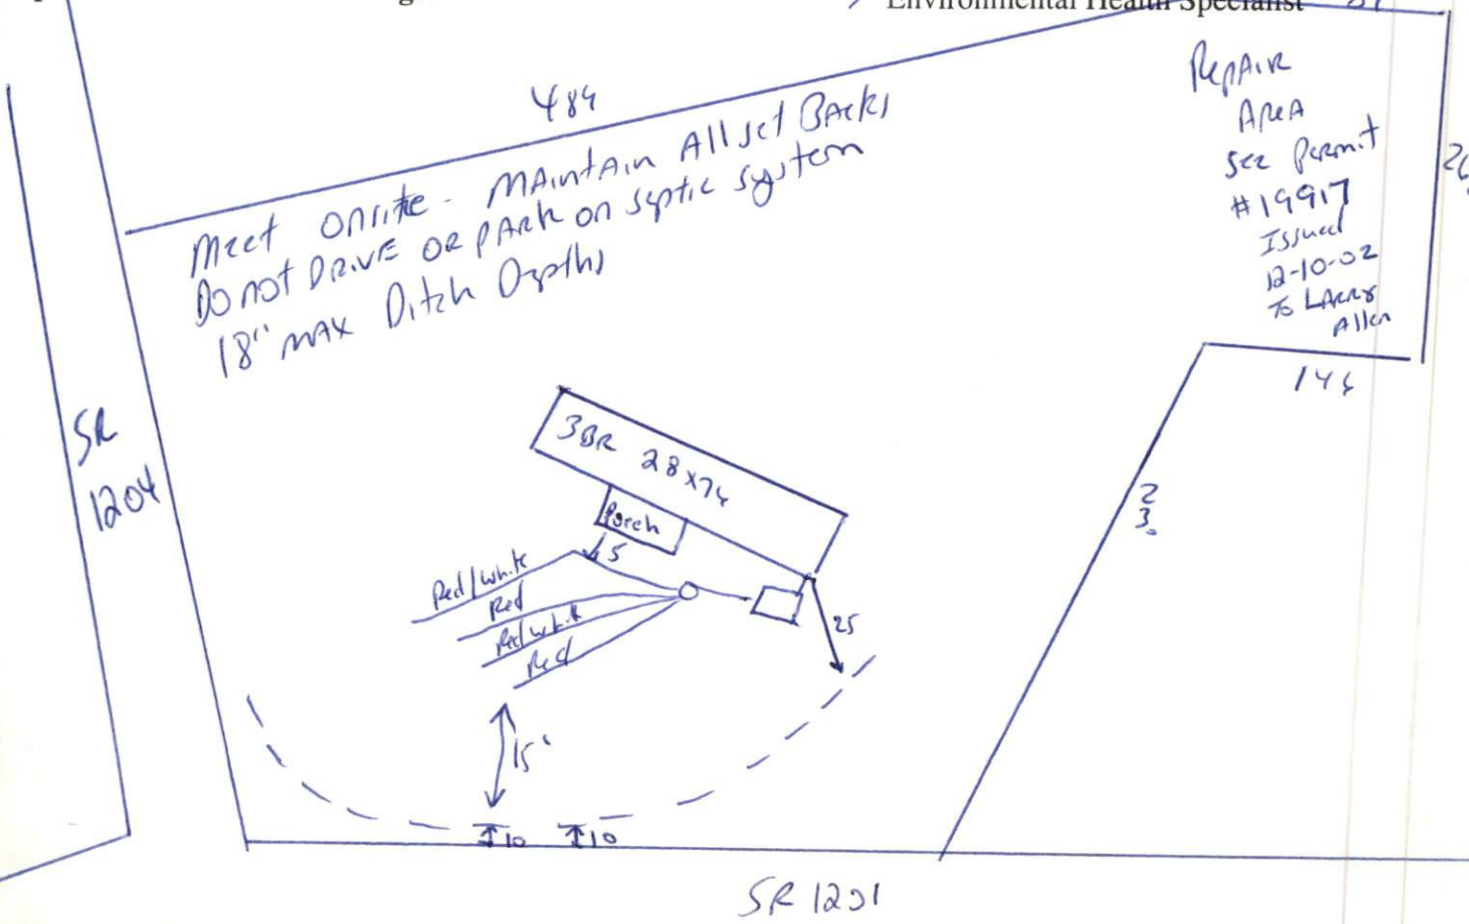 Environmental Health Specialist
484
Meet onsite - Maintain All set Backs
Do not Drive or park on septic system
18" max Ditch Depths
Repair
Area
see Permit
#19917
Issued
12-10-02
To Larry
Allen
SR
1204
3BR 28x76
Porch
5
Red/white
Red
Red/white
Red
25
15'
10
10
SR 1201